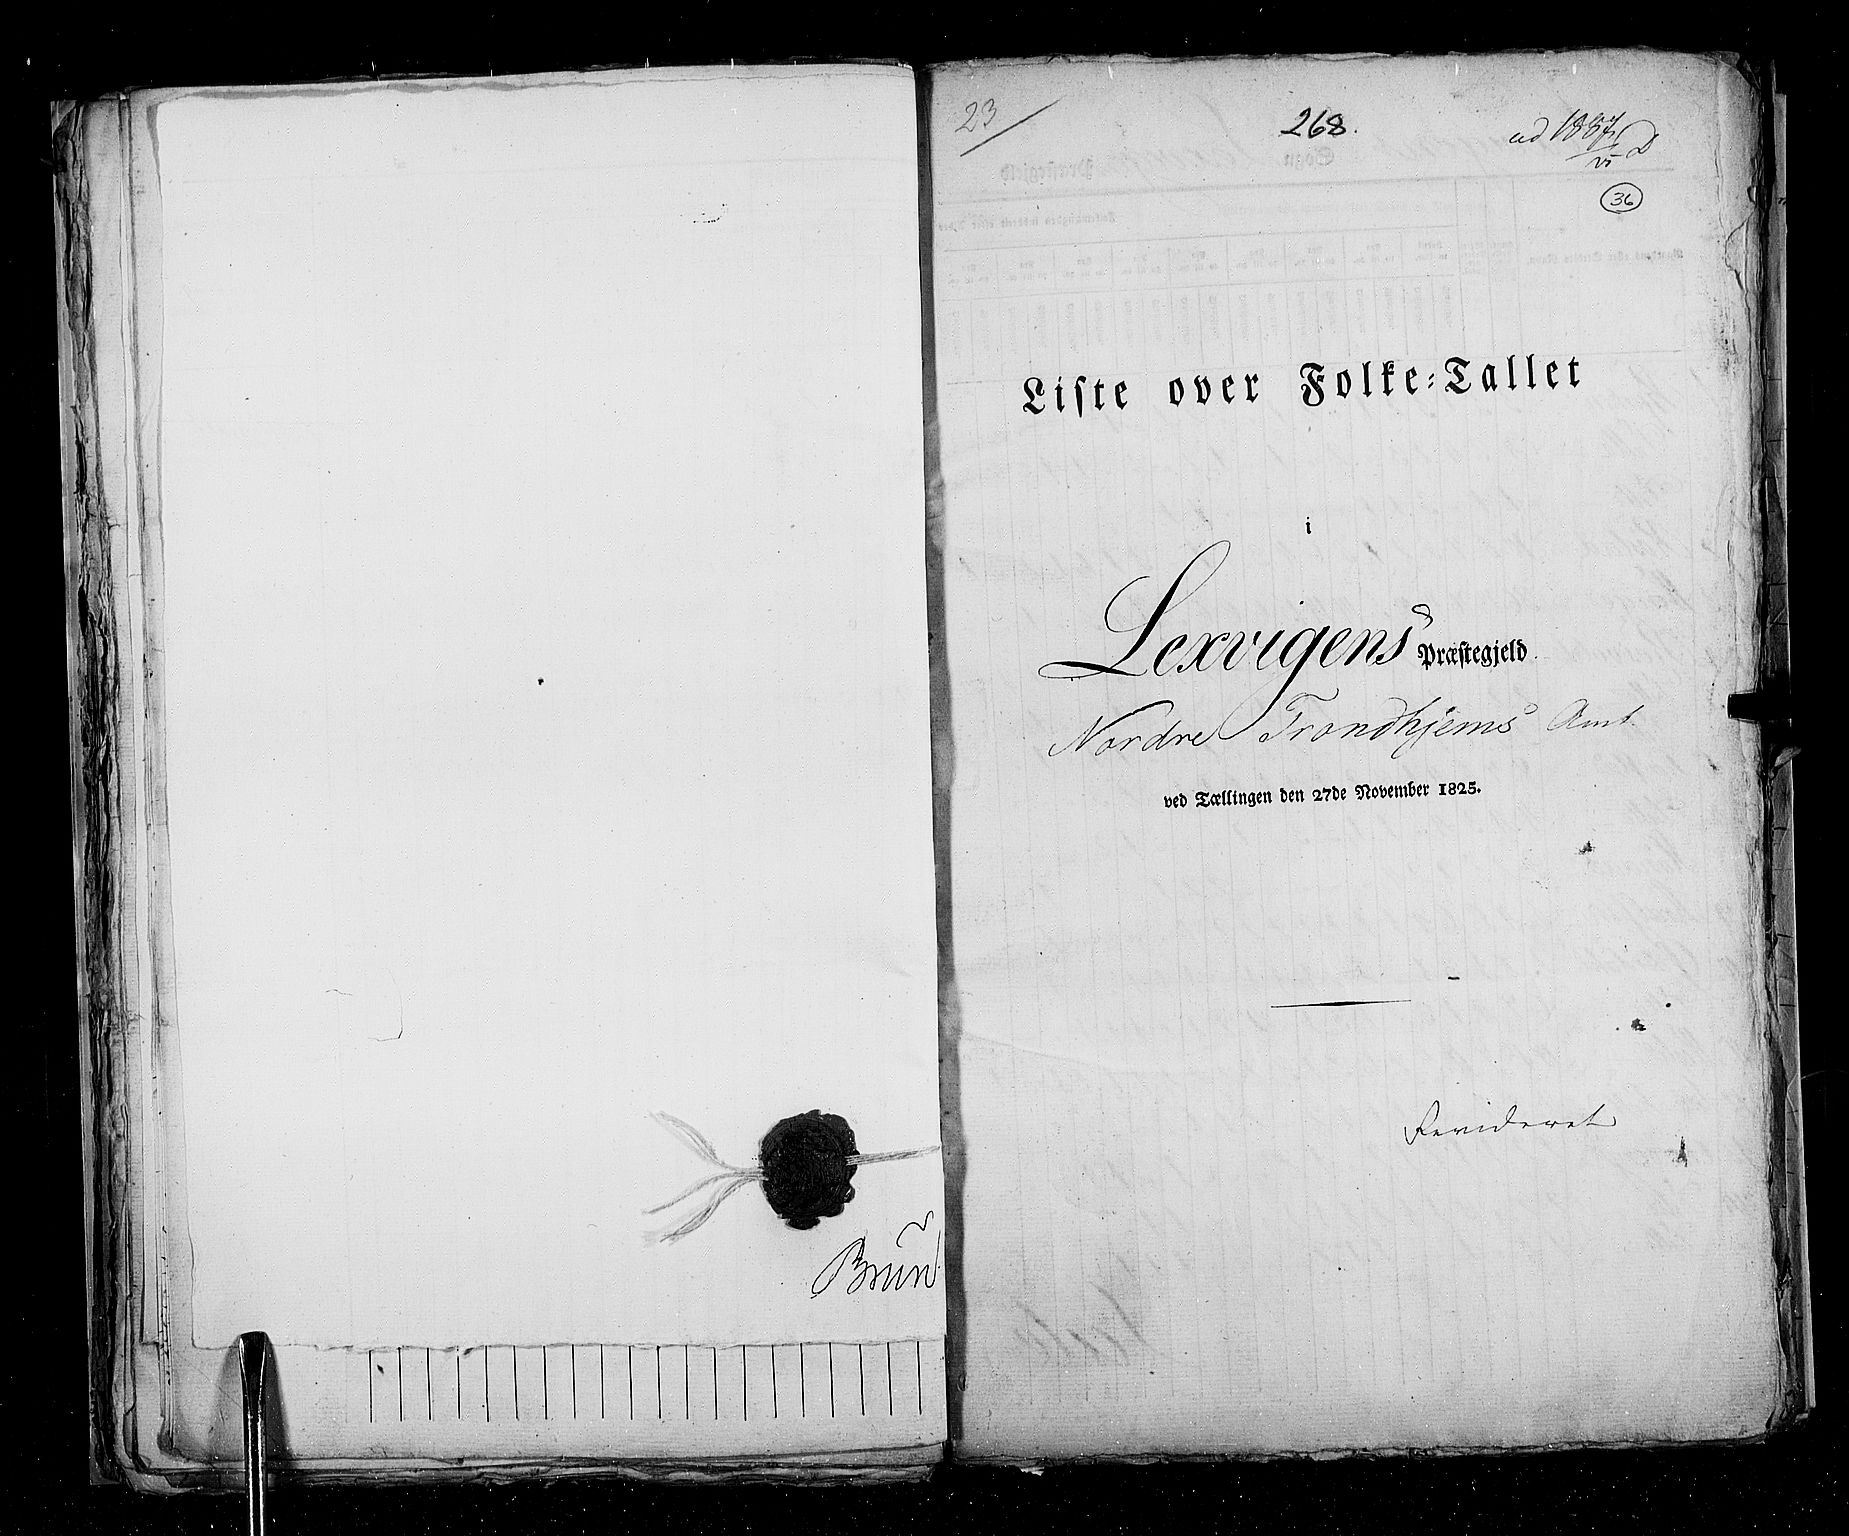 Brun
23
268.
ad 1887
D
36
Liste over Folke-Tallet
i
Lexvigens Præstegjeld
Nordre Trondhjems Amt
ved Tællingen den 27de November 1825.
Revideret